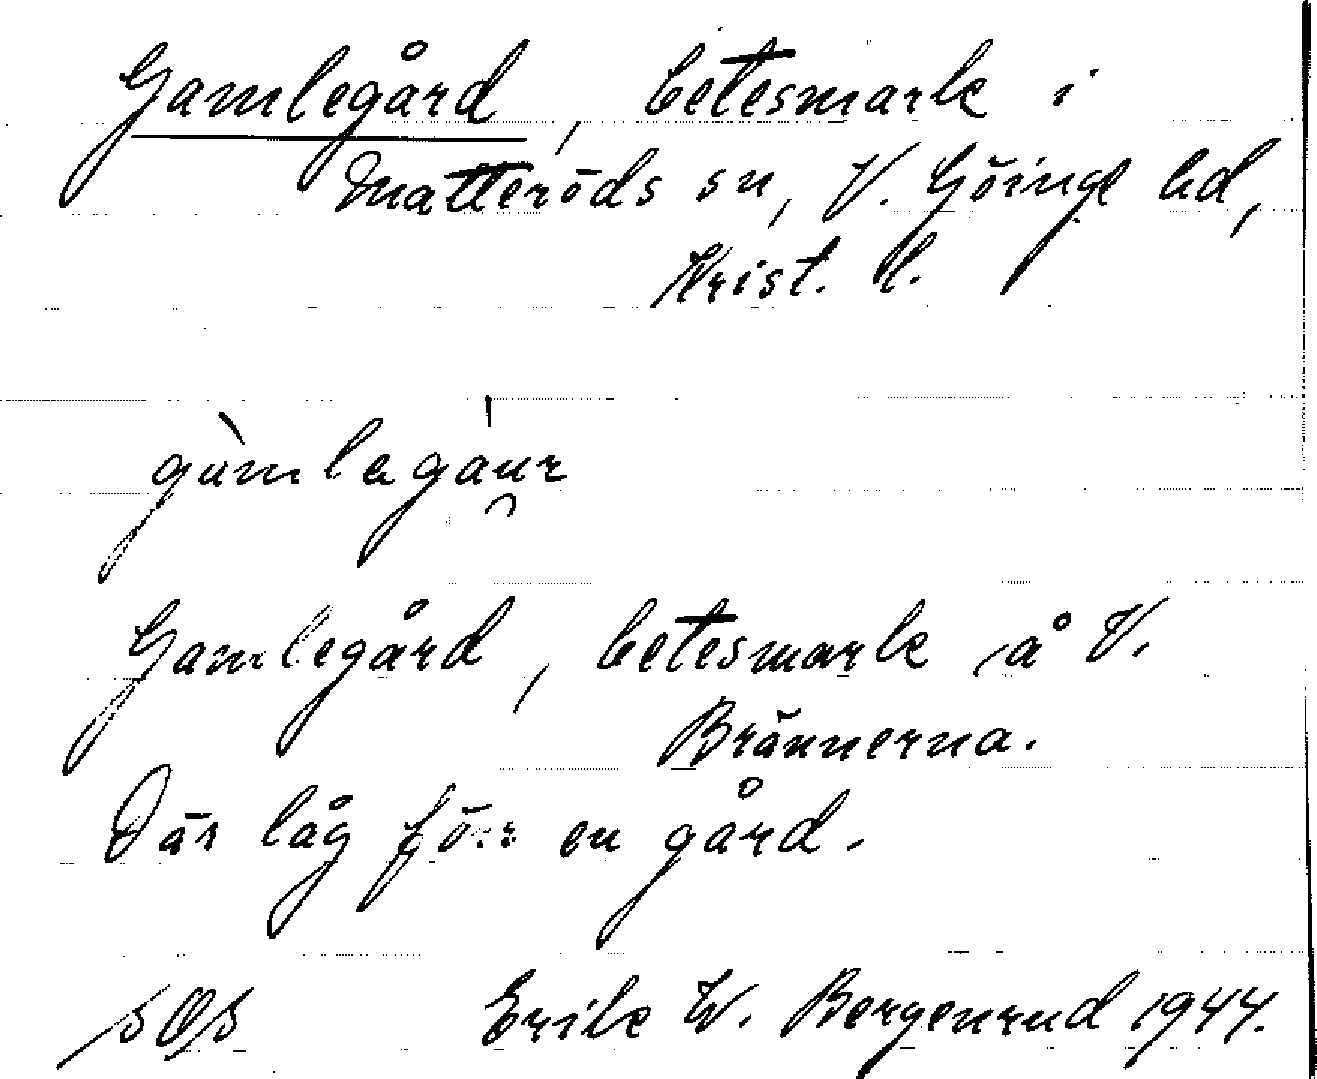 Gamlegård, betesmark i
Matteröds sn, V. Göinge hd,
Krist. l.
gàmlagáu̯r
Gamlegård, betesmark å V.
Brännerna.
Där låg förr en gård.
sOs Erik W. Bergenrud 1944.